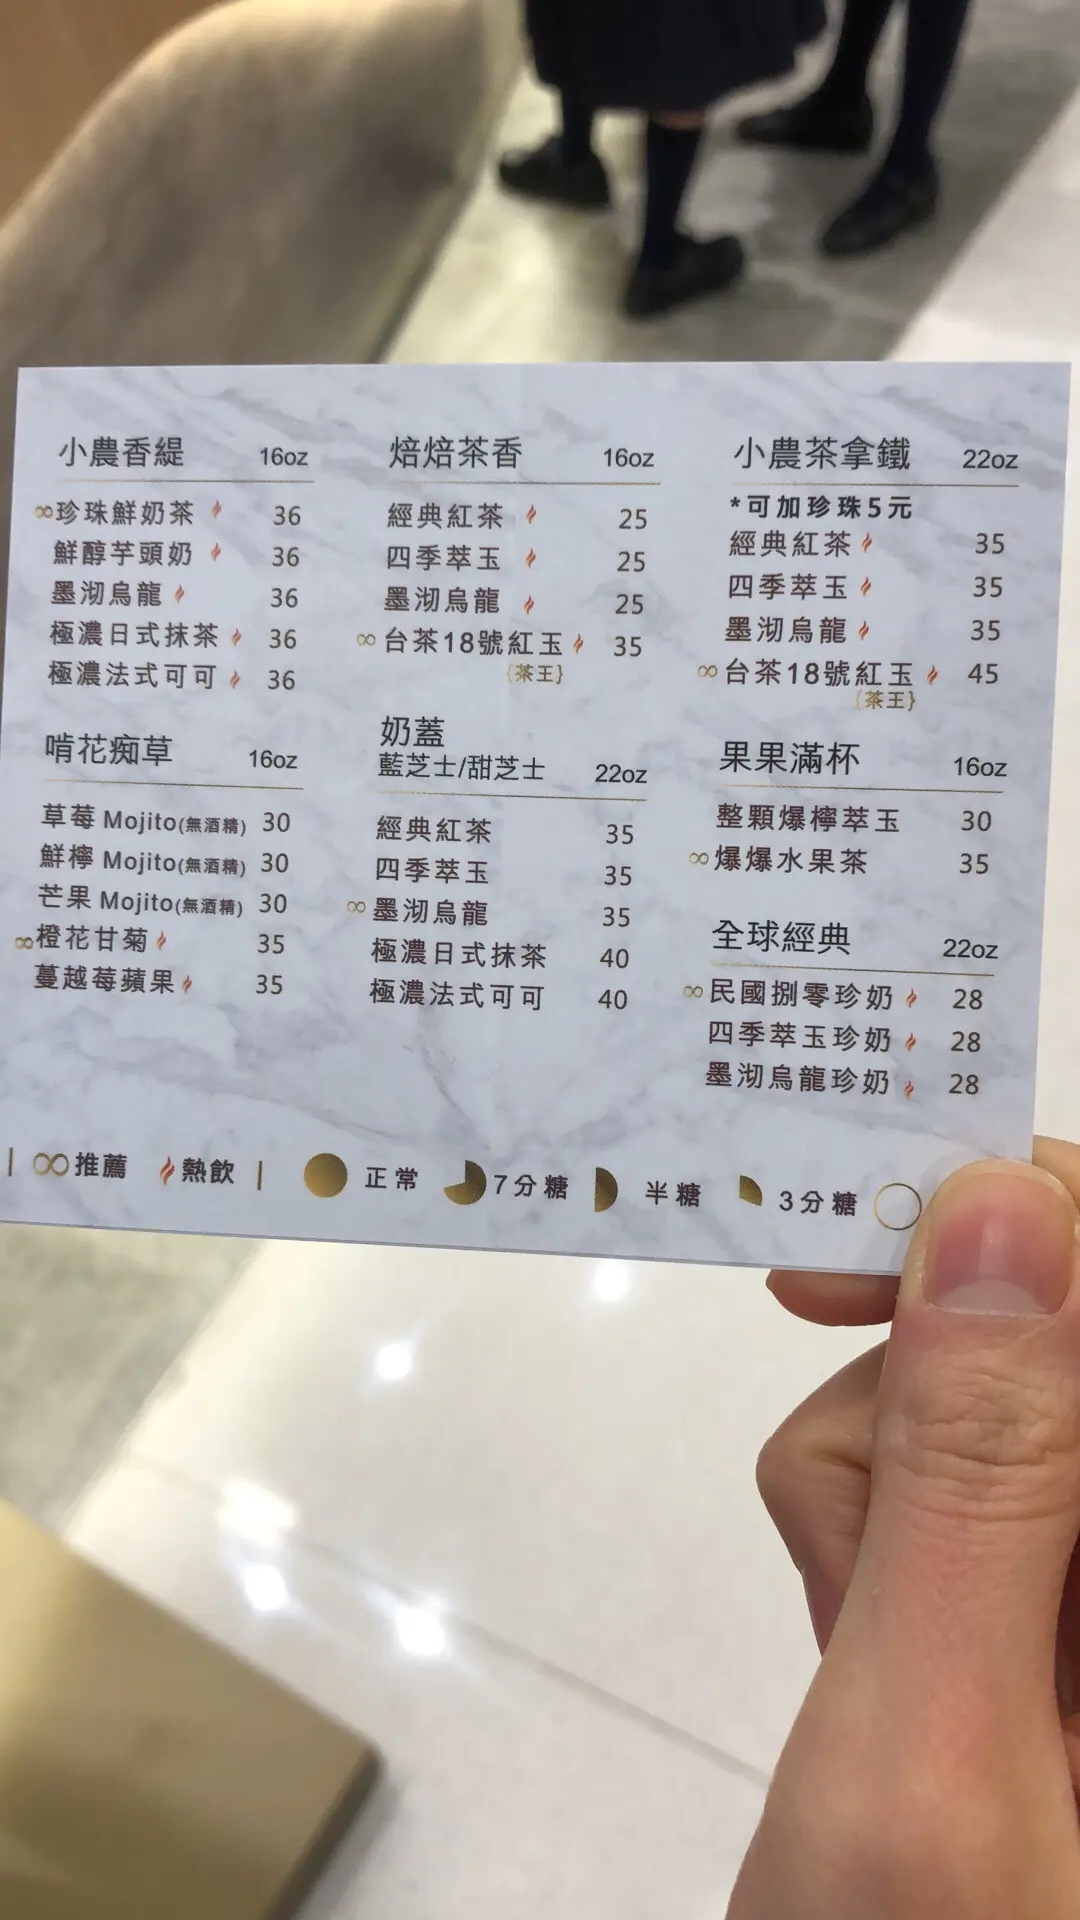 小農香緹 16oz
∞珍珠鮮奶茶 36
鮮醇芋頭奶 36
墨沏烏龍 36
極濃日式抹茶 36
極濃法式可可 36
焙焙茶香 16oz
經典紅茶 25
四季萃玉 25
墨沏烏龍 25
∞台茶18號紅玉 35
{茶王}
小農茶拿鐵 22oz
*可加珍珠5元
經典紅茶 35
四季萃玉 35
墨沏烏龍 35
∞台茶18號紅玉 45
{茶王}
啃花痴草 16oz
草莓 Mojito(無酒精) 30
鮮檸 Mojito(無酒精) 30
芒果 Mojito(無酒精) 30
∞橙花甘菊 35
蔓越莓蘋果 35
奶蓋
藍芝士/甜芝士 22oz
經典紅茶 35
四季萃玉 35
∞墨沏烏龍 35
極濃日式抹茶 40
極濃法式可可 40
果果滿杯 16oz
整顆爆檸萃玉 30
∞爆爆水果茶 35
全球經典 22oz
∞民國捌零珍奶 28
四季萃玉珍奶 28
墨沏烏龍珍奶 28
| ∞推薦 熱飲 | 正常 7分糖 半糖 3分糖